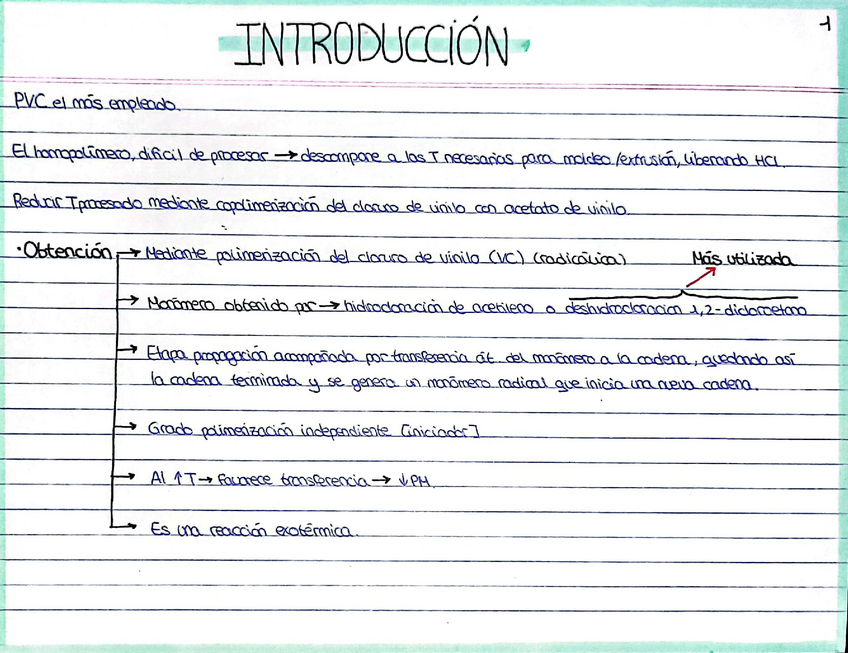 INTRODUCCIÓN
1
PVC el más empleado.
El homopolímero, difícil de procesar → descompone a las T necesarias para moldeo/extrusión, liberando HCl.
Reducir Tprocesado mediante copolimerización del cloruro de vinilo con acetato de vinilo.
·Obtención → Mediante polimerización del cloruro de vinilo (VC) (radicálica)
Más utilizada
→ Monómero obtenido por → hidrocloración de acetileno o deshidrocloración 1,2-dicloroetano
→ Etapa propagación acompañada por transferencia át. del monómero a la cadena, quedando así
la cadena terminada y se genera un monómero radical que inicia una nueva cadena.
→ Grado polimerización independiente [iniciador]
→ Al ↑T → Favorece transferencia → ↓PM.
→ Es una reacción exotérmica.